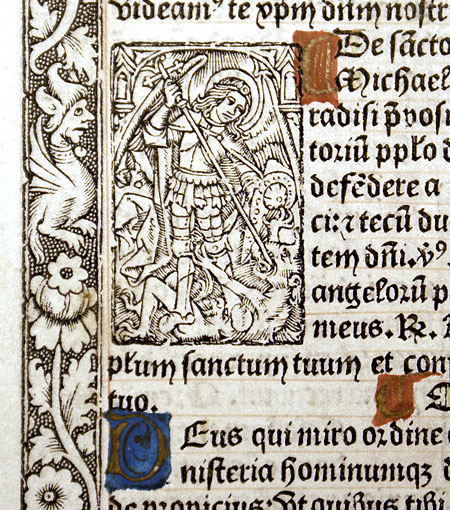 videam⁹ te xp̄m dn̄m nostr
De sc̄to
Michael
radisi p̄pos
toriū pplo d
defēdere a
ci: ⁊ tecū du
tem dn̄i. v̄⁹.
angeloꝝ p
meus. ℟.
plum sanctum tuum et con
tuo.
Deus qui miro ordine
nisteria hominumqꝫ d
de propicius: vt quibus tibi